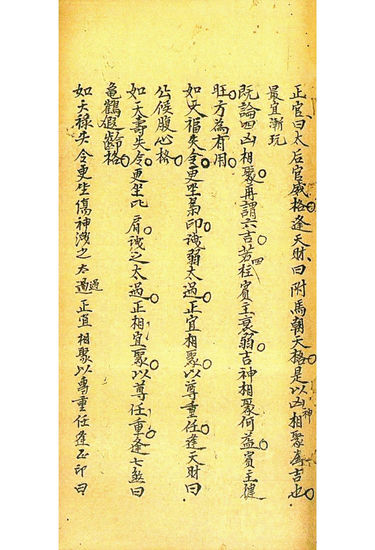 正官、曰太后官威格逢天財、曰附馬朝天格是以凶神相聚為吉也
最宜漸玩
既論四凶相聚再謂六吉若四柱賓主衰弱吉神相聚何益賓主健
旺方為有用
如天福失令更坐梟印洩弱太過正宜相聚以尊重任逢天財曰
公候腹心格
如天壽失令更坐比肩洩之太過正相宜聚以尊任重逢七煞曰
亀鶴假齡格
如天祿失令更坐傷神洩之太過正宜相聚以專重任逢正印曰